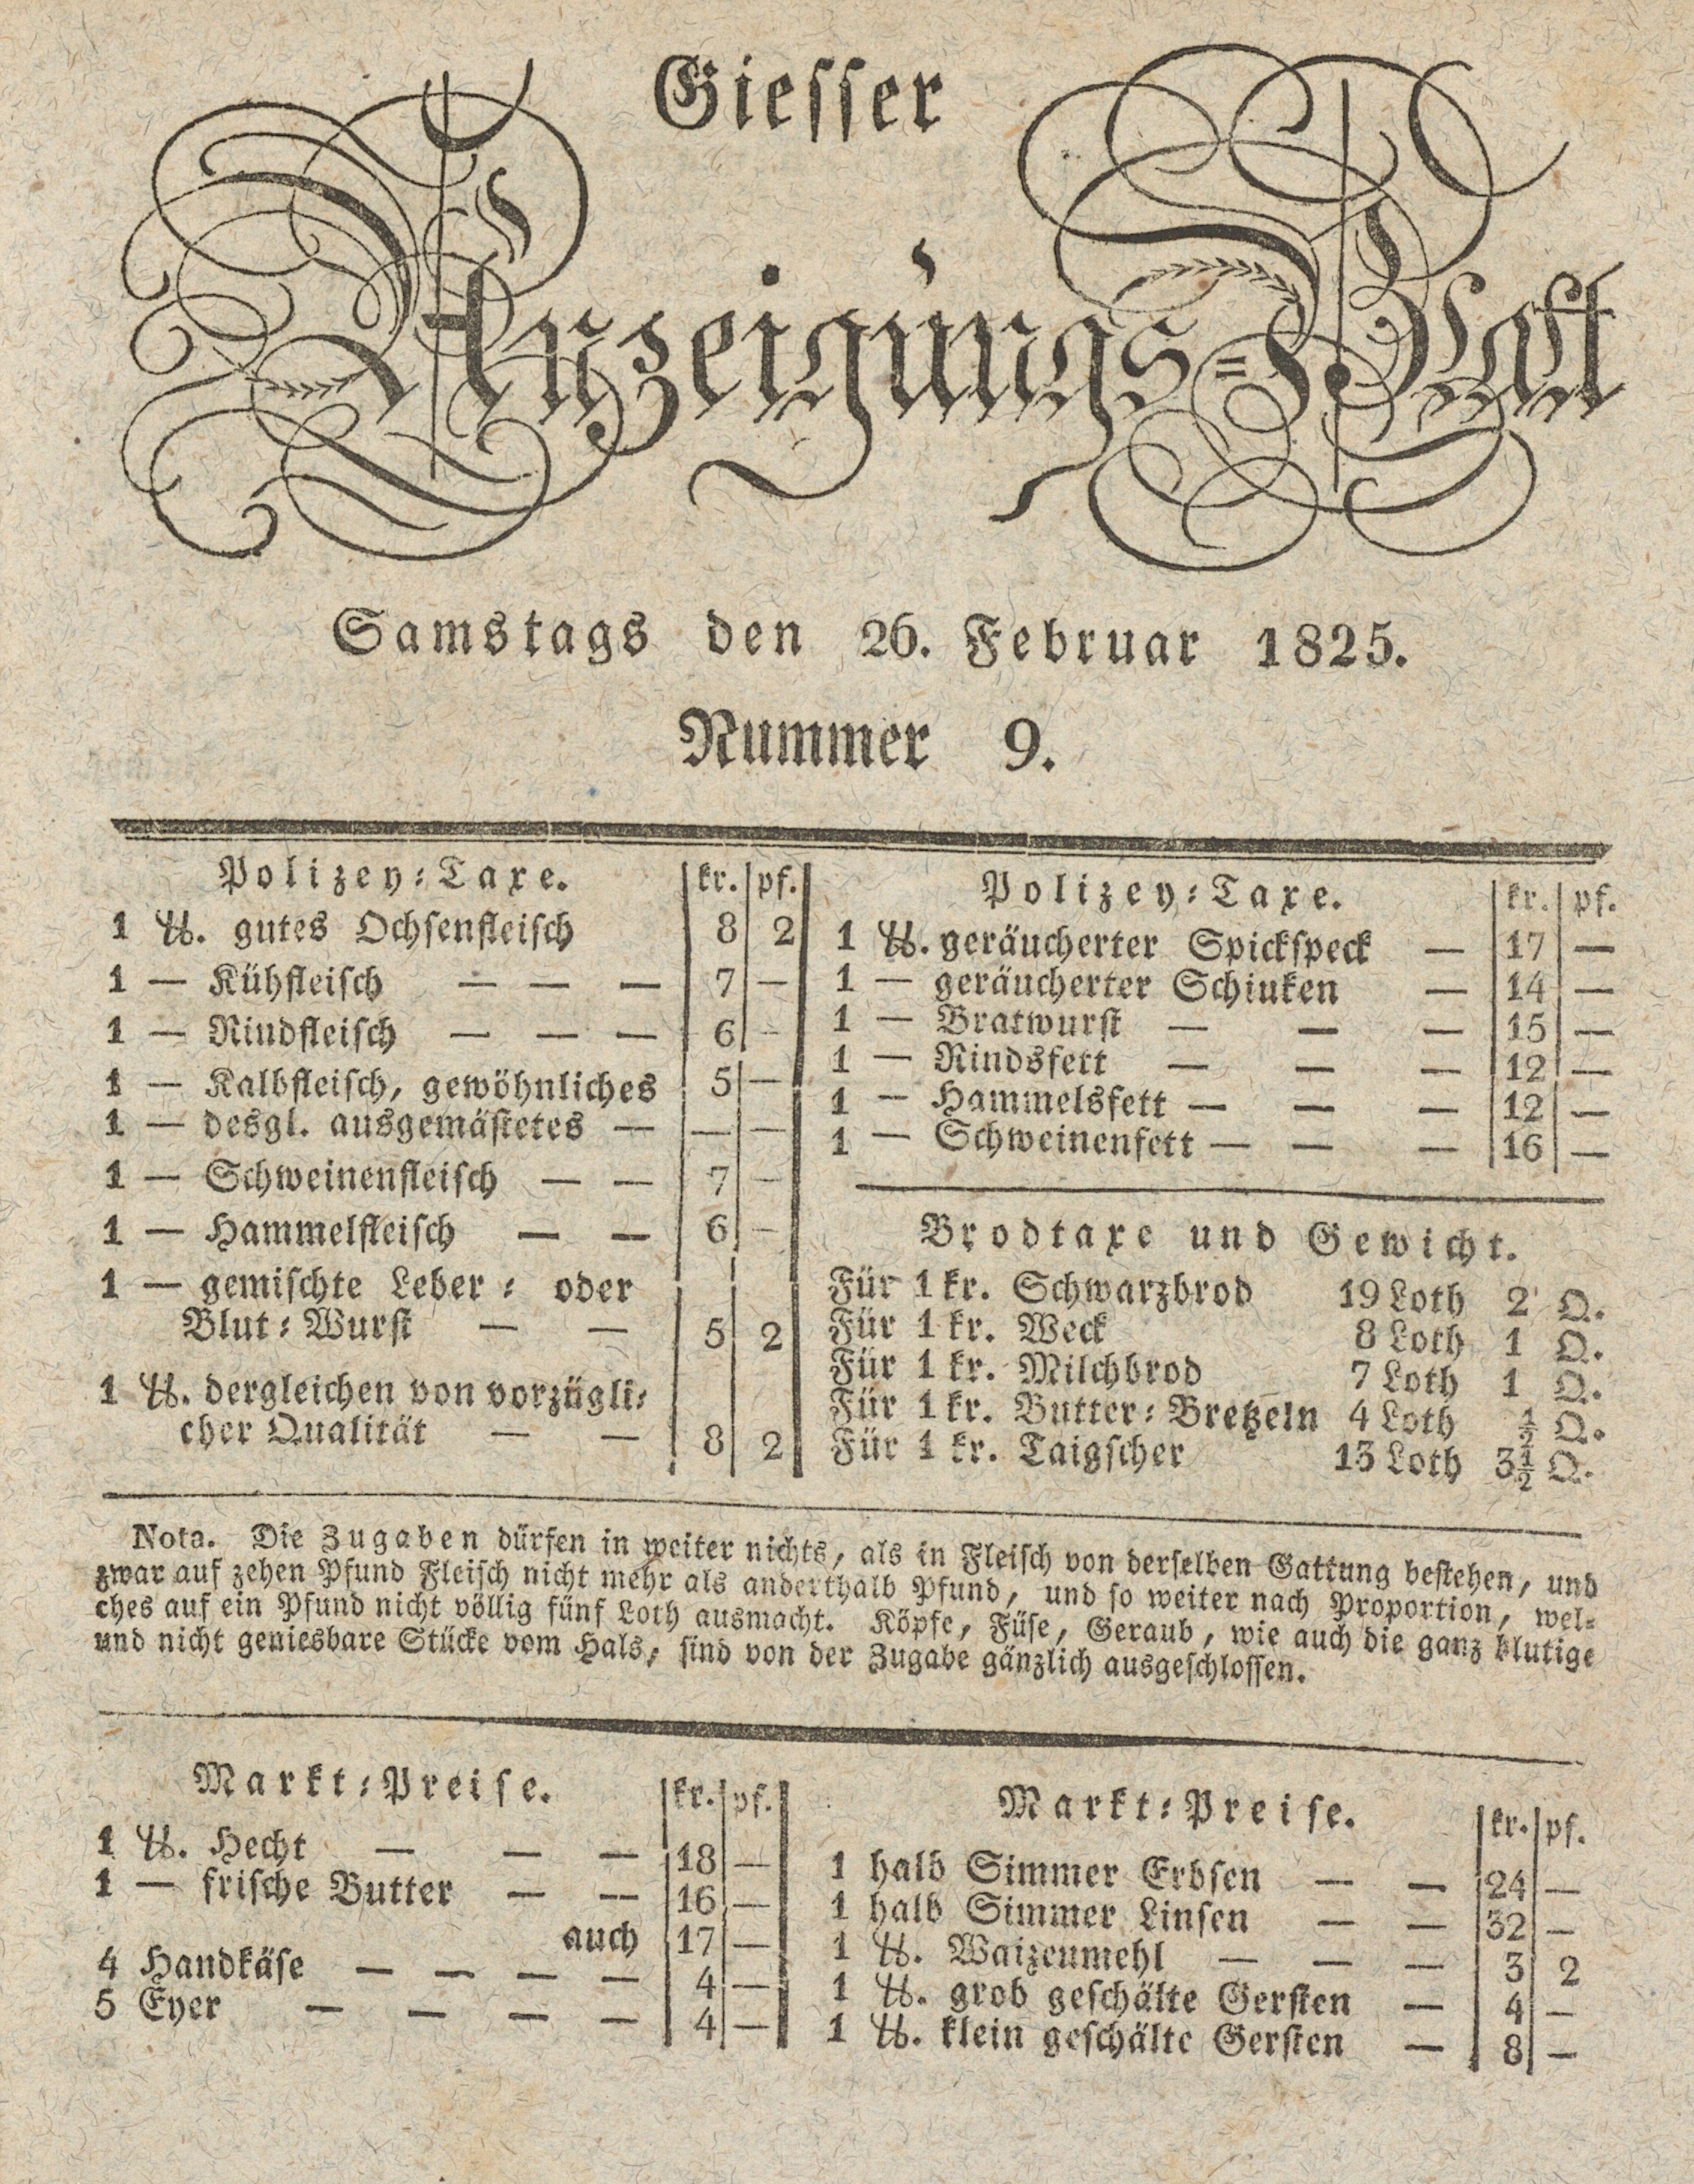 Giesser
Anzeigungs=Blatt
Samstags den 26. Februar 1825.
Nummer 9.
Polizey=Taxe. kr. pf.
1 ℔. gutes Ochsenfleisch 8 2
1 — Kühfleisch — — — 7 —
1 — Rindfleisch — — — 6 —
1 — Kalbfleisch, gewöhnliches 5 —
1 — desgl. ausgemästetes — — —
1 — Schweinenfleisch — — 7 —
1 — Hammelfleisch — — 6 —
1 — gemischte Leber= oder
Blut=Wurst — — 5 2
1 ℔. dergleichen von vorzügli=
cher Qualität — — 8 2
Polizey=Taxe. kr. pf.
1 ℔. geräucherter Spickspeck — 17 —
1 — geräucherter Schinken — 14 —
1 — Bratwurst — — — 15 —
1 — Rindsfett — — — 12 —
1 — Hammelsfett — — — 12 —
1 — Schweinenfett — — — 16 —
Brodtaxe und Gewicht.
Für 1 kr. Schwarzbrod 19 Loth 2 Q.
Für 1 kr. Weck 8 Loth 1 Q.
Für 1 kr. Milchbrod 7 Loth 1 Q.
Für 1 kr. Butter=Bretzeln 4 Loth ½ Q.
Für 1 kr. Taigscher 13 Loth 3½ Q.
Nota. Die Zugaben dürfen in weiter nichts, als in Fleisch von derselben Gattung bestehen, und
zwar auf zehen Pfund Fleisch nicht mehr als anderthalb Pfund, und so weiter nach Proportion, wel=
ches auf ein Pfund nicht völlig fünf Loth ausmacht. Köpfe, Füse, Geraub, wie auch die ganz blutige
und nicht geniesbare Stücke vom Hals, sind von der Zugabe gänzlich ausgeschlossen.
Markt=Preise. kr. pf.
1 ℔. Hecht — — — 18 —
1 — frische Butter — — 16 —
auch 17 —
4 Handkäse — — — — 4 —
5 Eyer — — — — 4 —
Markt=Preise. kr. pf.
1 halb Simmer Erbsen — — 24 —
1 halb Simmer Linsen — — 32 —
1 ℔. Waizenmehl — — — 3 2
1 ℔. grob geschälte Gersten — 4 —
1 ℔. klein geschälte Gersten — 8 —